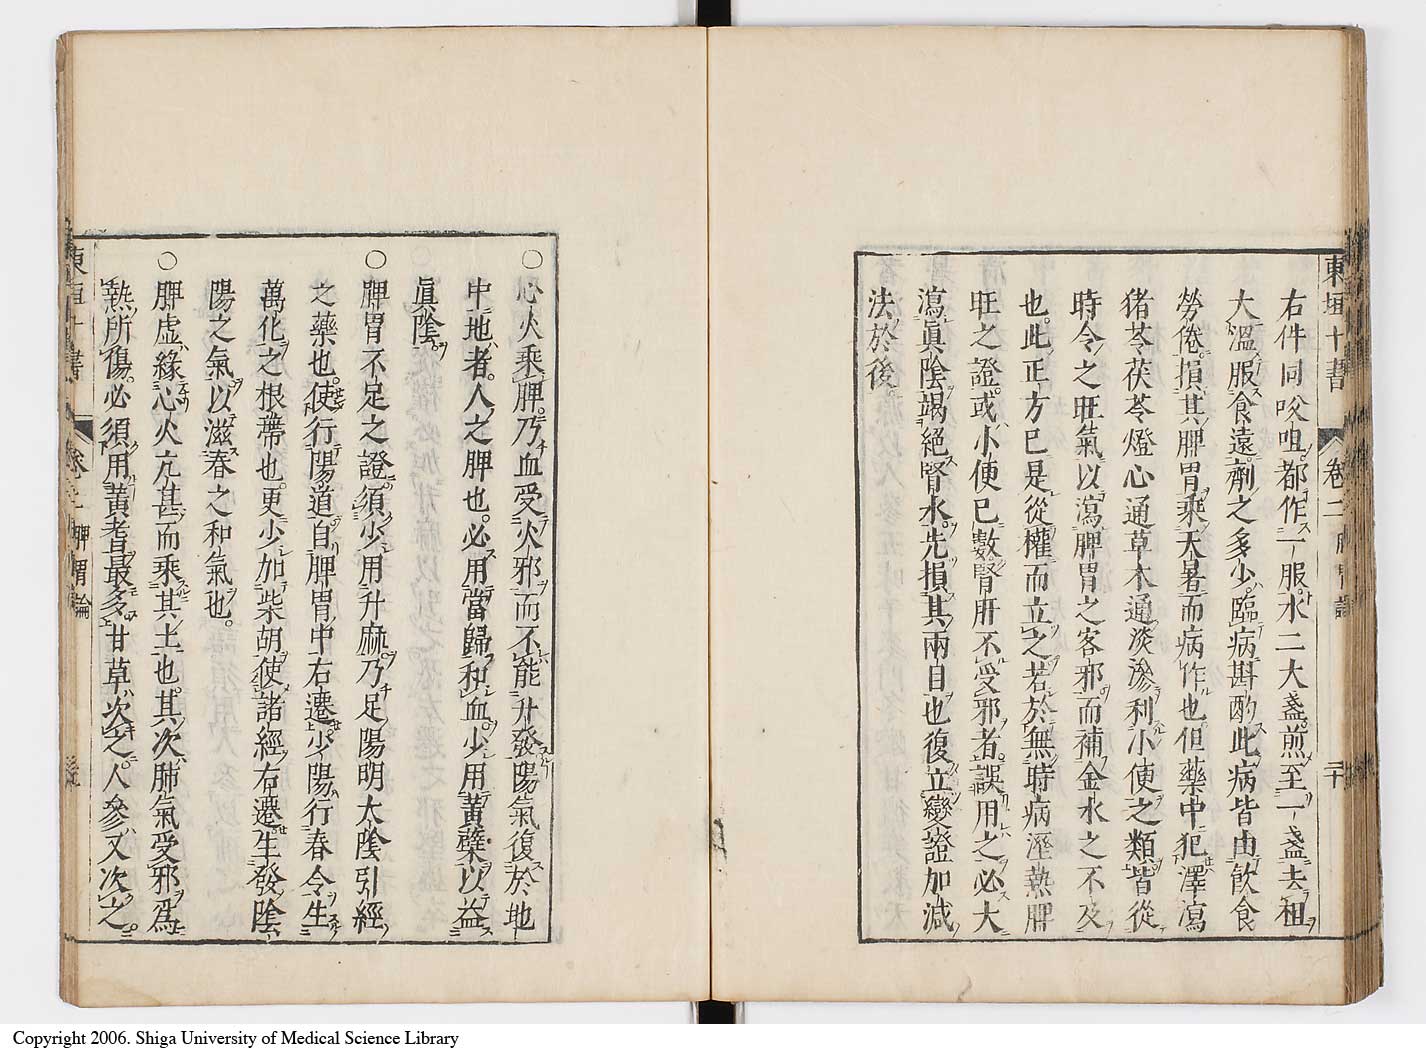 東垣十書 卷二 脾胃論 二十
右件同㕮咀都作一服水二大盞煎至一盞去粗
大溫服食遠劑之多少臨病斟酌此病皆由飲食
勞倦損其脾胃乘天暑而病作也但藥中犯澤瀉
猪苓茯苓燈心通草木通淡滲利小便之類皆從
時令之旺氣以瀉脾胃之客邪而補金水之不及
也此正方已是從權而立之若於無時病溼熱脾
旺之證或小便已數腎肝不受邪者誤用之必大
瀉眞陰竭絕腎水先損其兩目也復立變證加減
法於後
○心火乘脾乃血受火邪而不能升發陽氣復於地
中地者人之脾也必用當歸和血少用黃蘗以益
眞陰
○脾胃不足之證須少用升麻乃足陽明太陰引經
之藥也使行陽道自脾胃中右遷少陽行春令生
萬化之根蔕也更少加柴胡使諸經右遷生發陰
陽之氣以滋春之和氣也
○脾虛緣心火亢甚而乘其土也其次肺氣受邪爲
熱所傷必須用黃耆最多甘草次之人參又次之
東垣十書 卷二 脾胃論
Copyright 2006. Shiga University of Medical Science Library